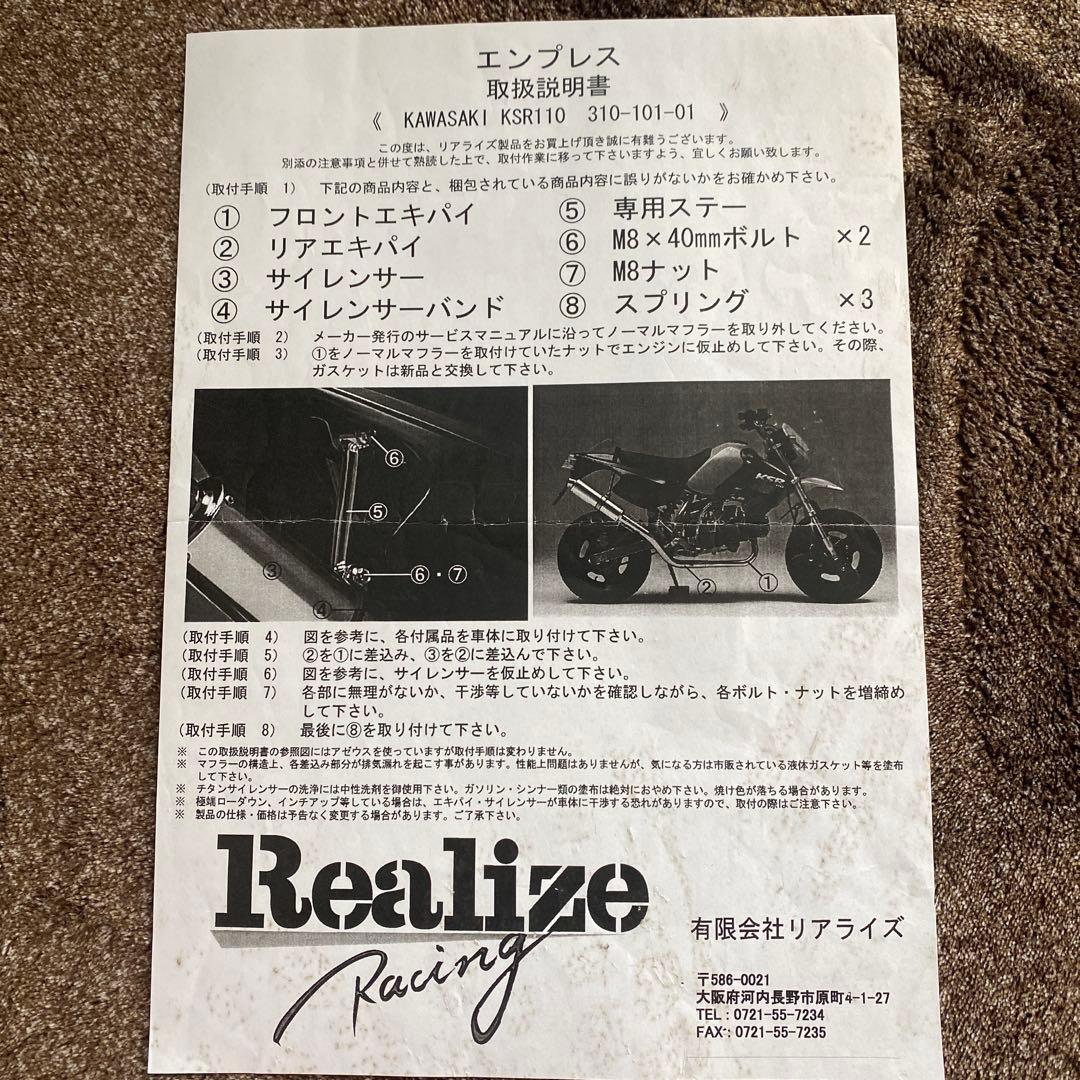 エンプレス
取扱説明書
《 KAWASAKI KSR110 310-101-01 》
この度は、リアライズ製品をお買上げ頂き誠に有難うございます。
別添の注意事項と併せて熟読した上で、取付作業に移って下さいますよう、宜しくお願い致します。
(取付手順 1) 下記の商品内容と、梱包されている商品内容に誤りがないかをお確かめ下さい。
① フロントエキパイ ⑤ 専用ステー
② リアエキパイ ⑥ M8×40mmボルト ×2
③ サイレンサー ⑦ M8ナット
④ サイレンサーバンド ⑧ スプリング ×3
(取付手順 2) メーカー発行のサービスマニュアルに沿ってノーマルマフラーを取り外してください。
(取付手順 3) ①をノーマルマフラーを取付けていたナットでエンジンに仮止めして下さい。その際、
ガスケットは新品と交換して下さい。
⑥
⑤
③
⑥・⑦
④
KSR
②
①
(取付手順 4) 図を参考に、各付属品を車体に取り付けて下さい。
(取付手順 5) ②を①に差込み、③を②に差込んで下さい。
(取付手順 6) 図を参考に、サイレンサーを仮止めして下さい。
(取付手順 7) 各部に無理がないか、干渉等していないかを確認しながら、各ボルト・ナットを増締め
して下さい。
(取付手順 8) 最後に⑧を取り付けて下さい。
※ この取扱説明書の参照図にはアゼウスを使っていますが取付手順は変わりません。
※ マフラーの構造上、各差込み部分が排気漏れを起こす事があります。性能上問題はありませんが、気になる方は市販されている液体ガスケット等を塗布
して下さい。
※ チタンサイレンサーの洗浄には中性洗剤を御使用下さい。ガソリン・シンナー類の塗布は絶対におやめ下さい。焼け色が落ちる場合があります。
※ 極端ローダウン、インチアップ等している場合は、エキパイ・サイレンサーが車体に干渉する恐れがありますので、取付の際はご注意下さい。
※ 製品の仕様・価格は予告なく変更する場合があります。ご了承下さい。
Realize
Racing
有限会社リアライズ
〒586-0021
大阪府河内長野市原町4-1-27
TEL : 0721-55-7234
FAX : 0721-55-7235